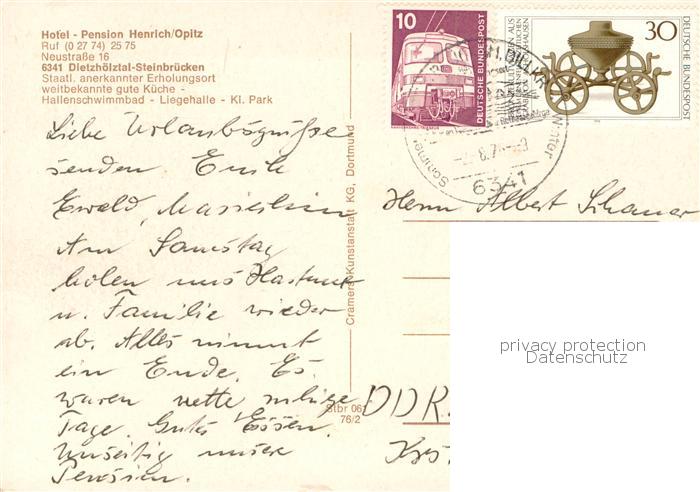 Hotel - Pension Henrich/Opitz
Ruf (0 27 74) 25 75
Neustraße 16
6341 Dietzhölztal-Steinbrücken
Staatl. anerkannter Erholungsort
weitbekannte gute Küche -
Hallenschwimmbad - Liegehalle - Kl. Park
10
DEUTSCHE BUNDESPOST
30
DEUTSCHE BUNDESPOST
Sommer
Winter
6341
Liebe Urlaubsgrüße
senden Eure
Ewald,
Am Samstag
holen uns Hartmut
u. Familie wieder
ab. Alles nimmt
ein Ende. Es
waren nette ruhige
Tage. Gutes Essen.
unsere
Pension.
Cramers Kunstanstalt KG, Dortmund
Stbr 06
76/2
Herrn Albert Schauer
DDR.
Krs.
privacy protection
Datenschutz